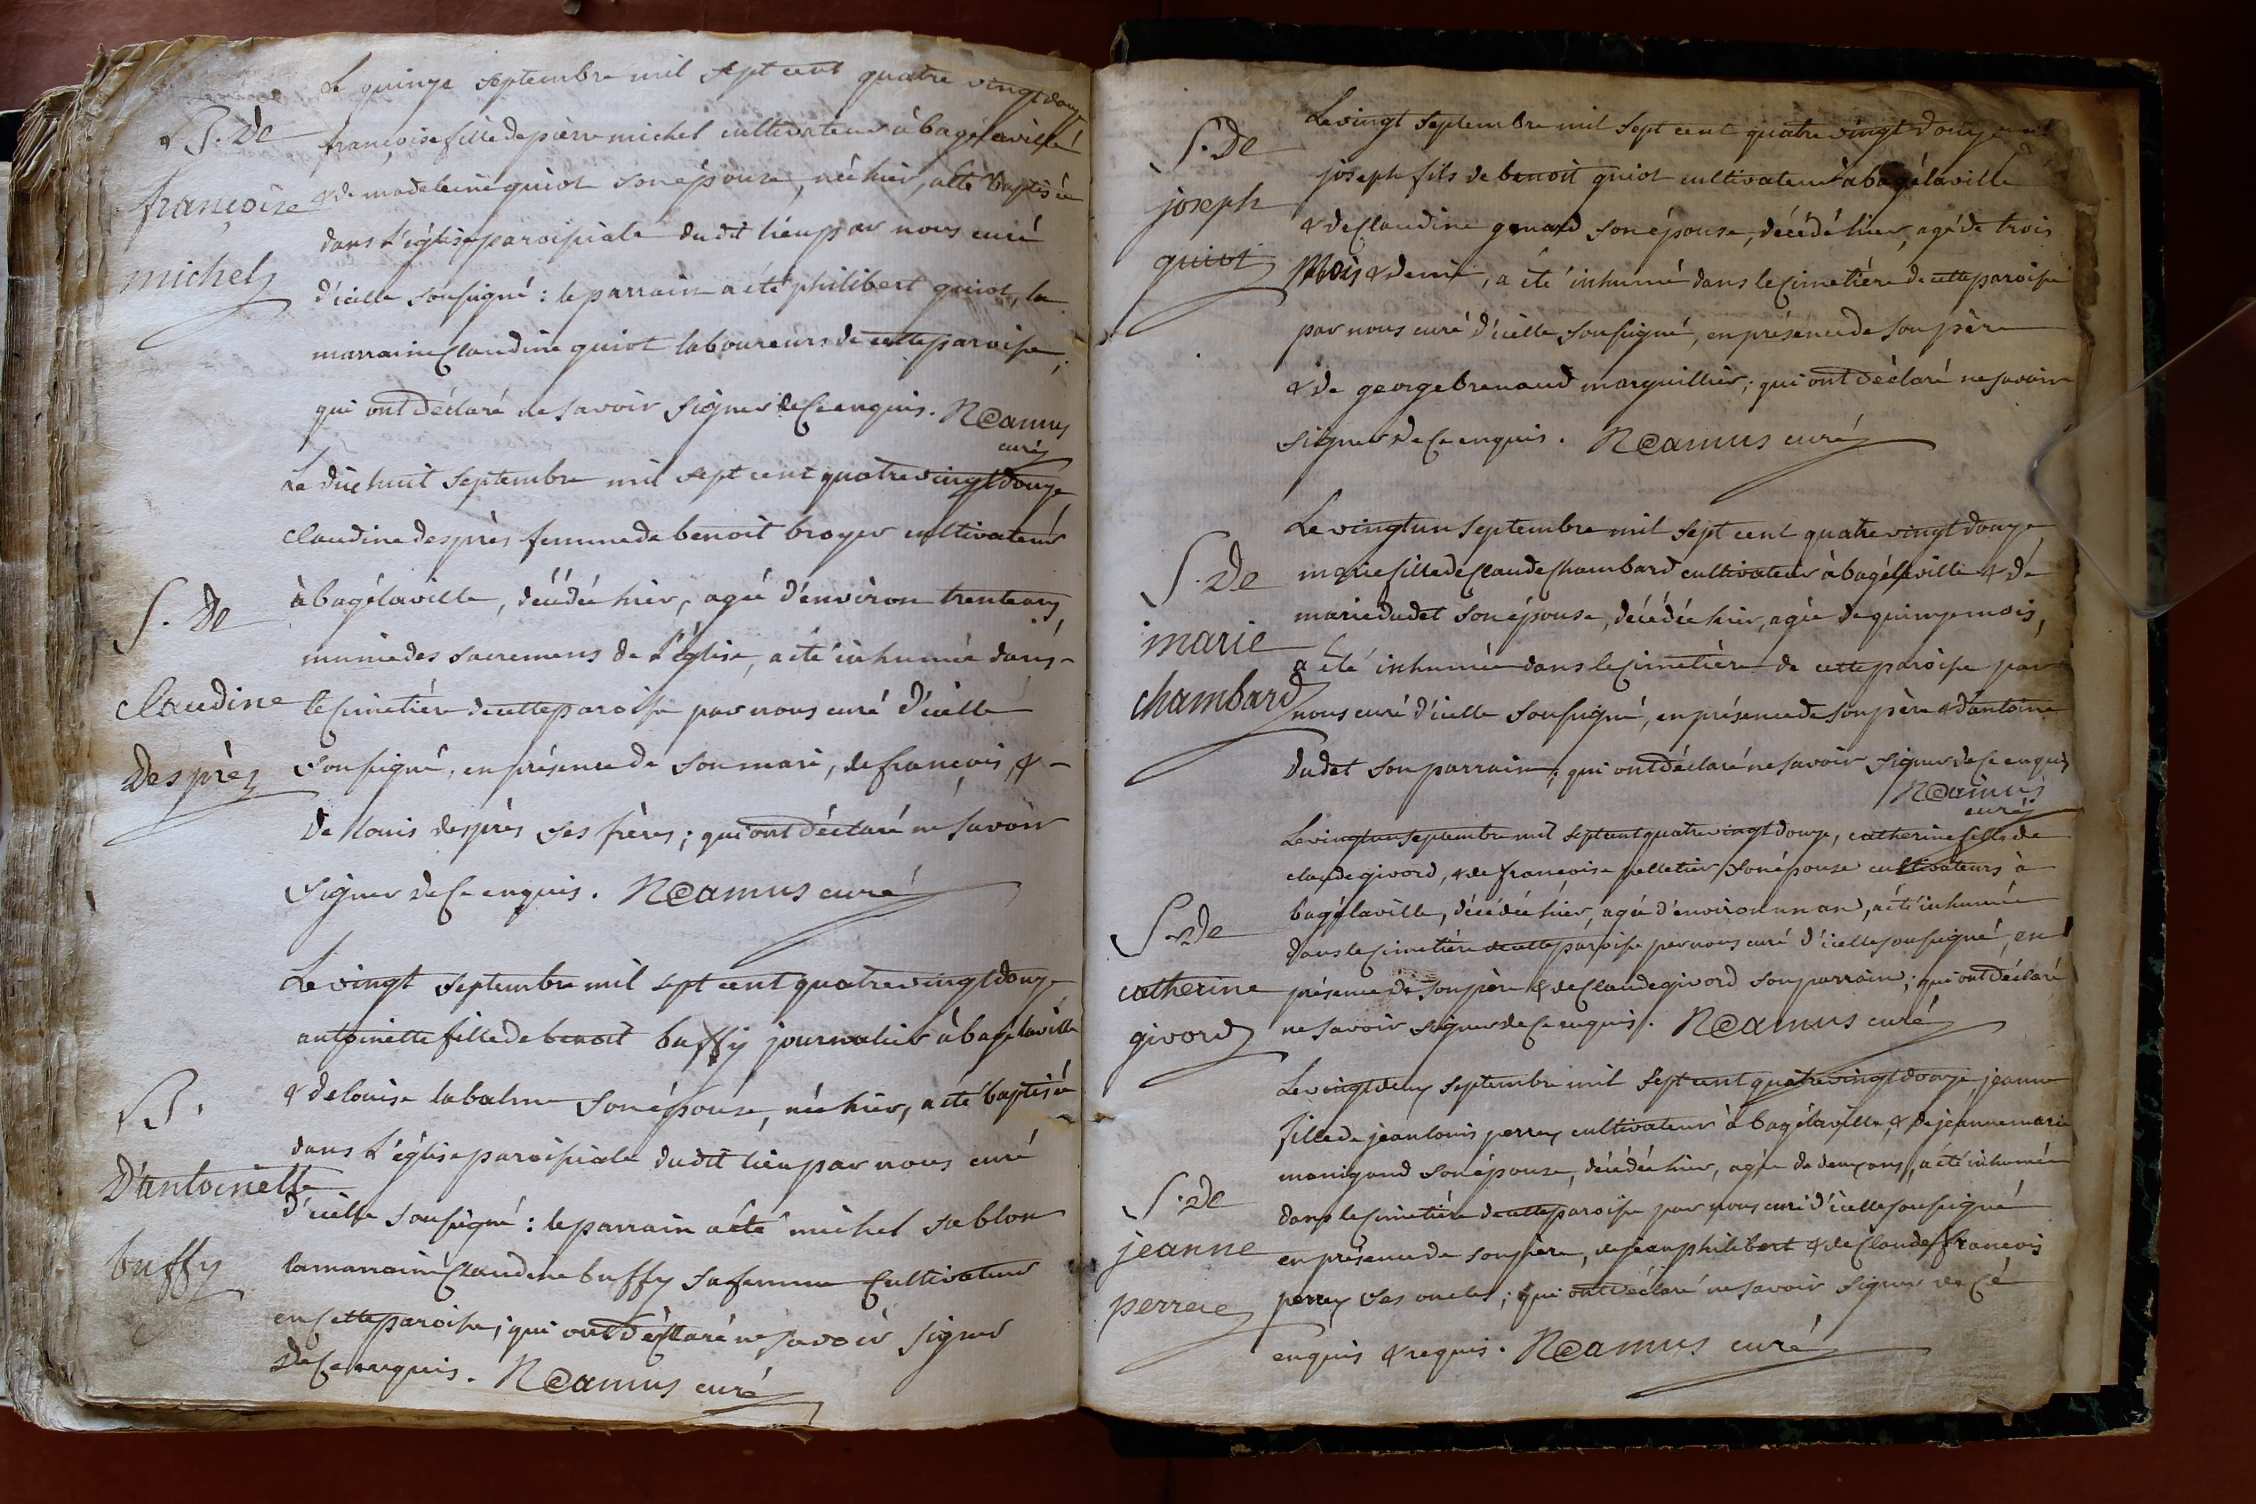 B. de
françoise
michel
Le quinze septembre mil sept cent quatre vingt douze
françoise fille de pierre michel cultivateur à bagélaville
& de madeleine guiot son épouse, née hier, a été baptisée
dans l'église paroissiale dudit lieu par nous curé
d'icelle soussigné : le parrain a été philibert guiot, la
marraine Claudine guiot laboureurs de cette paroisse,
qui ont déclaré ne savoir signer de Ce enquis. Ramus
curé
S. de
claudine
desprès
Le dix huit septembre mil sept cent quatre vingt douze
claudine desprès femme de benoit broyer cultivateur
à bagélaville, décédée hier, agée d'environ trente ans,
munie des sacremens de l'église, a été inhumée dans
le Cimetière de cette paroisse par nous curé d'icelle
soussigné, en présence de son mari, de françois, &
de louis desprès ses frères ; qui ont déclaré ne savoir
signer de Ce enquis. Ramus curé
B.
D'antoinette
buffy
Le vingt septembre mil sept cent quatre vingt douze
antoinette fille de benoit buffy journalier à bagélaville
& de louise labalme son épouse, née hier, a été baptisée
dans l'église paroissiale dudit lieu par nous curé
d'icelle soussigné : le parrain a été michel sablon
la marraine Claudine buffy sa femme Cultivateurs
en Cette paroisse ; qui ont déclaré ne savoir signer
de Ce enquis. Ramus curé
S. de
joseph
guiot
Le vingt septembre mil sept cent quatre vingt douze
joseph fils de benoit guiot cultivateur à bagélaville
& de Claudine son épouse, décédé hier, agé de trois
Mois & demi, a été inhumé dans le Cimetière de cette paroisse
par nous curé d'icelle soussigné, en présence de son père
& de george brenaud marguillier ; qui ont déclaré ne savoir
signer de Ce enquis. Ramus curé
S. de
marie
chambard
Le vingt un septembre mil sept cent quatre vingt douze
marie fille de Claude Chambard cultivateur à bagélaville & de
marie dudet son épouse, décédée hier, agée de quinze mois,
a été inhumée dans le Cimetière de cette paroisse par
nous curé d'icelle soussigné, en présence de son père & d'antoine
dudet son parrain ; qui ont déclaré ne savoir signer de Ce enquis
Ramus
curé
S. de
catherine
givord
Le vingt un septembre mil sept cent quatre vingt douze, catherine fille de
claude givord, & de françoise pelletier son épouse cultivateurs à
bagélaville, décédée hier, agée d'environ un an, a été inhumée
dans le Cimetière de cette paroisse par nous curé d'icelle soussigné, en
présence de son père & de Claude givord son parrain ; qui ont déclaré
ne savoir signer de Ce enquis. Ramus curé
S. de
jeanne
perrex
Le vingt deux septembre mil sept cent quatre vingt douze, jeanne
fille de jean louis perrex cultivateur à bagélaville, & de jeanne marie
manigand son épouse, décédée hier, agée de deux ans, a été inhumée
dans le Cimetière de cette paroisse par nous curé d'icelle soussigné
en présence de son père, de jean philibert & de Claude françois
perrex ses oncles ; qui ont déclaré ne savoir signer de Ce
enquis & requis. Ramus curé